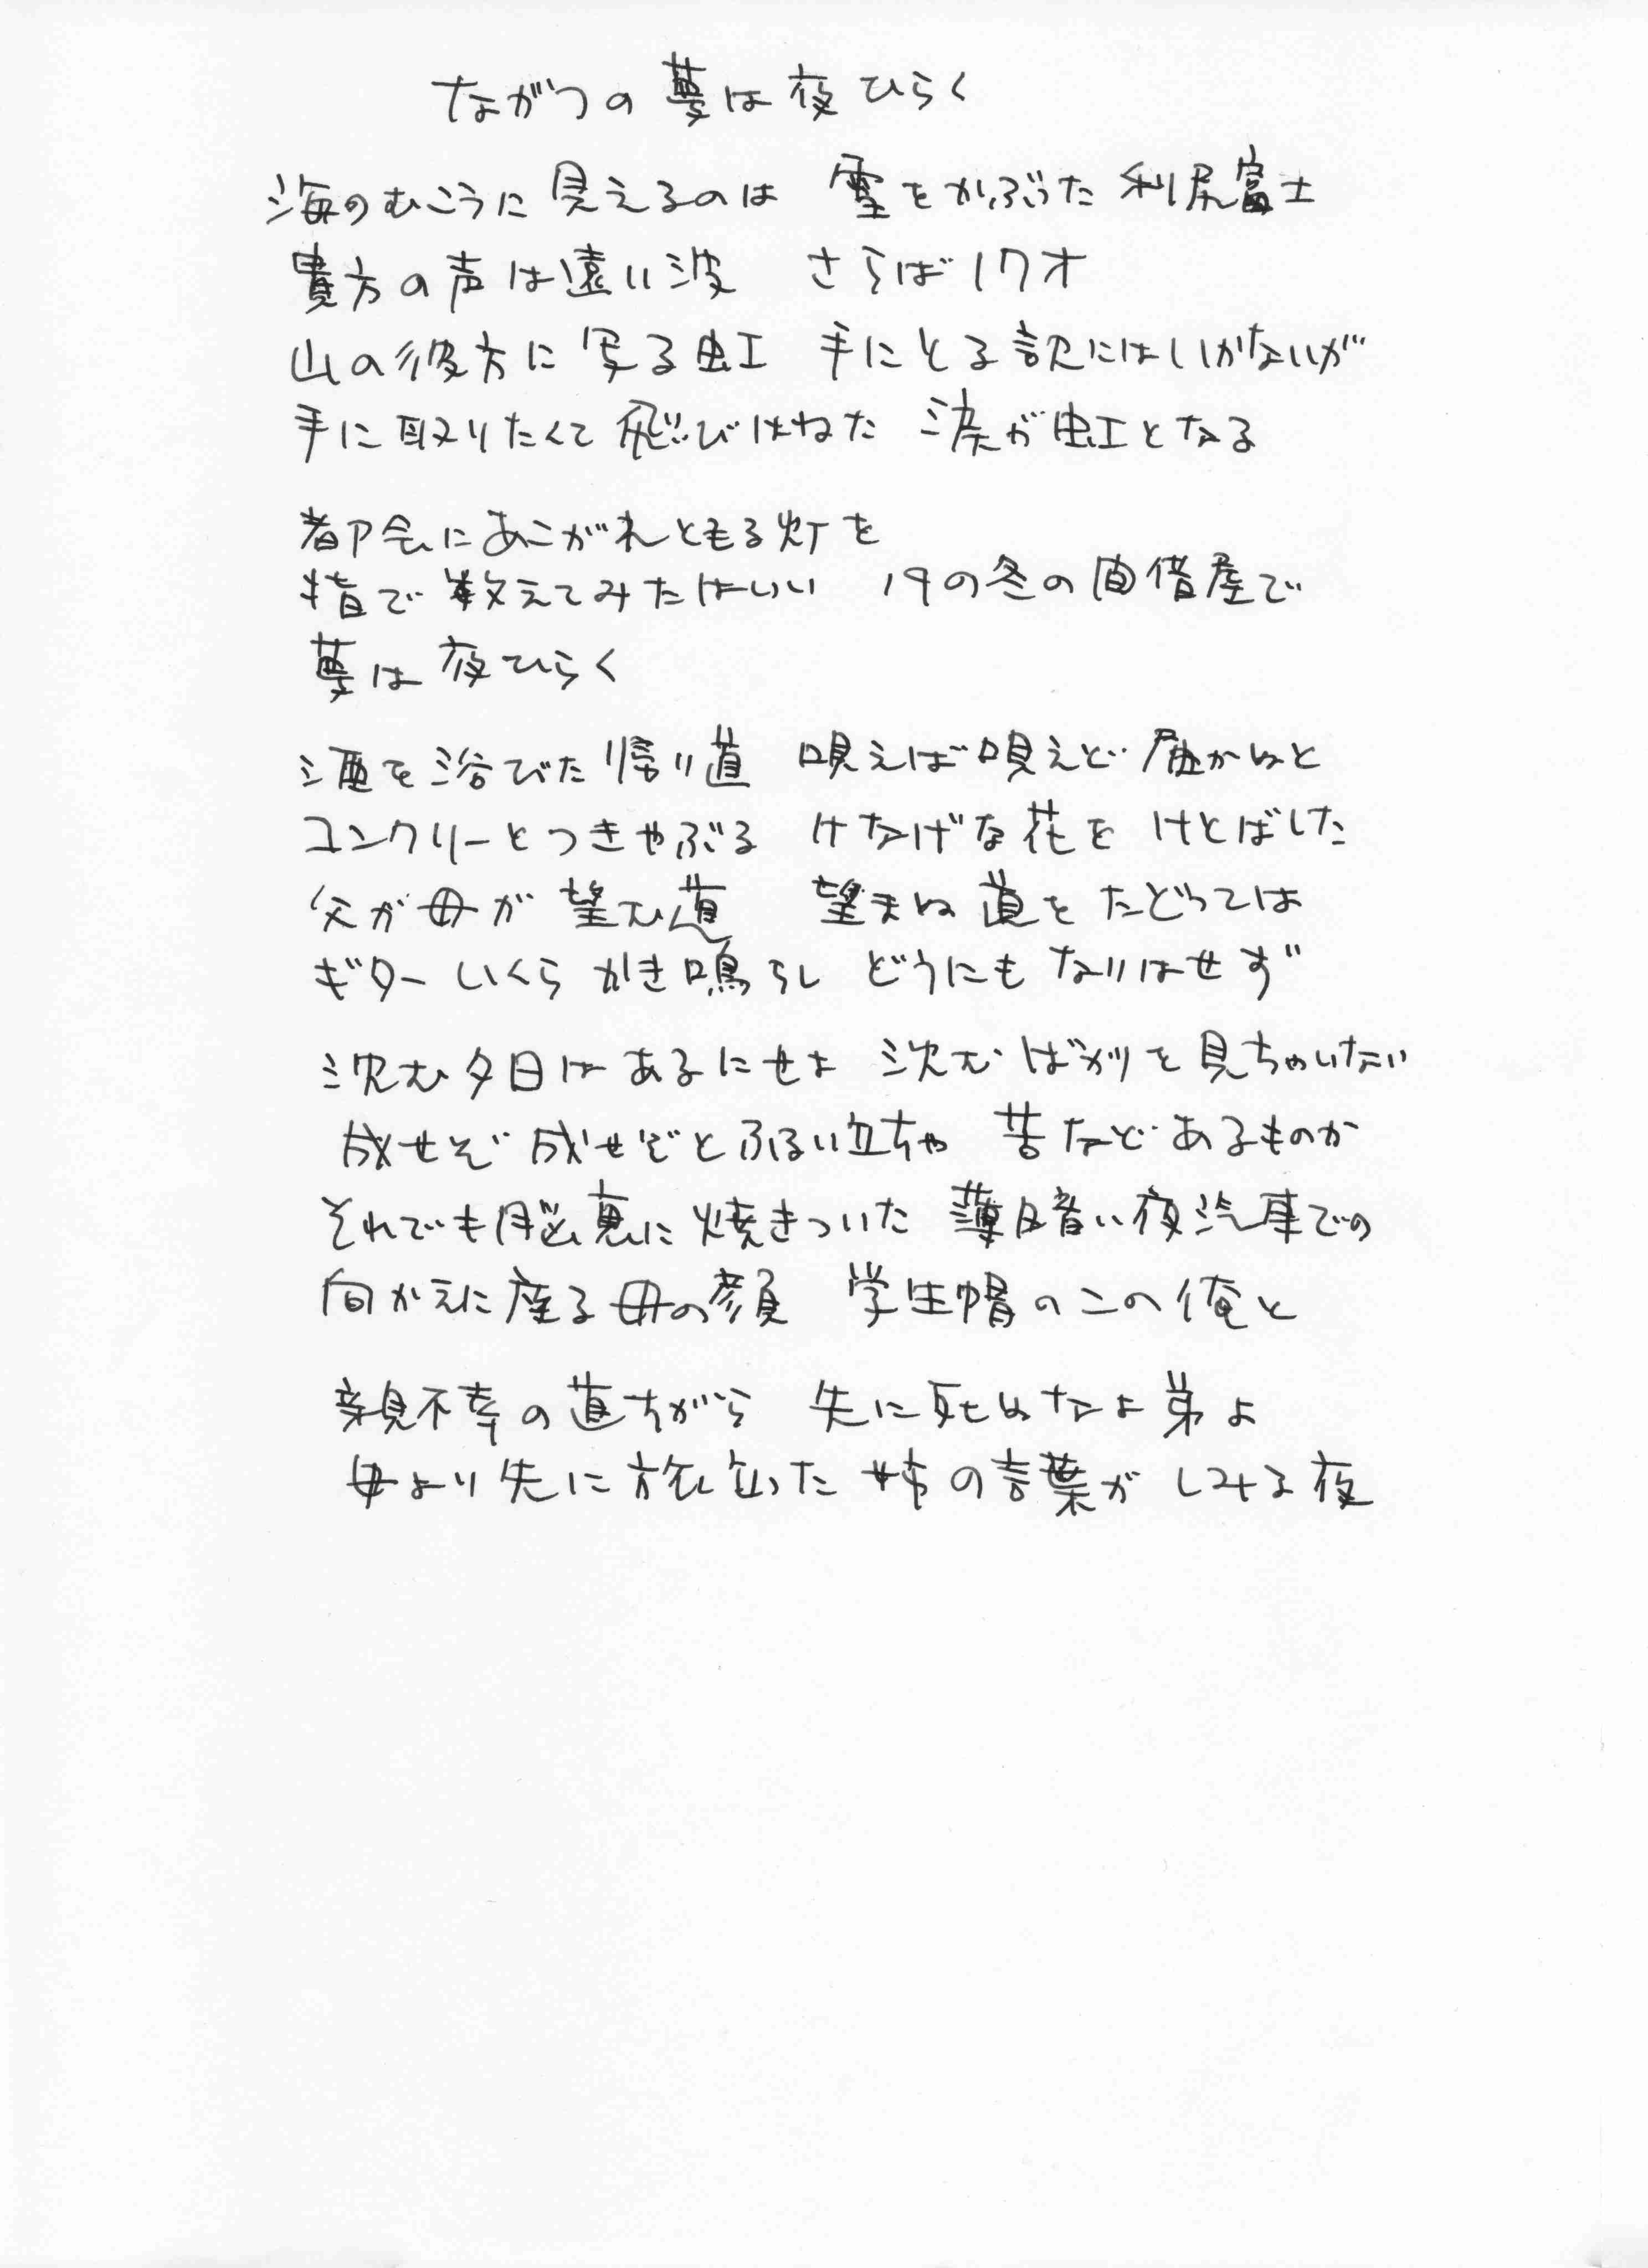 ながつの夢は夜ひらく
海のむこうに見えるのは 雪をかぶった利尻富士
貴方の声は遠い波 さらば17才
山の彼方に写る虹 手にとる訳にはいかないが
手に取りたくて飛びはねた 涙が虹となる
都会にあこがれともる灯を
指で数えてみたはいい 19の冬の間借屋で
夢は夜ひらく
酒を浴びた帰り道 唄えば唄えど届かぬと
コンクリーとつきやぶる けなげな花をけとばした
父が母が望む道 望まぬ道をたどっては
ギターいくらかき鳴らし どうにもなりはせず
沈む夕日はあるにせよ 沈むばかりを見ちゃいたい
成せぞ成せぞとふるい立ちゃ 苦などあるものか
それでも脳裏に焼きついた 薄暗い夜汽車での
向かえに座る母の顔 学生帽のこの俺と
親不幸の道ながら 先に死ぬなよ弟よ
母より先に旅立った 姉の言葉がしみる夜